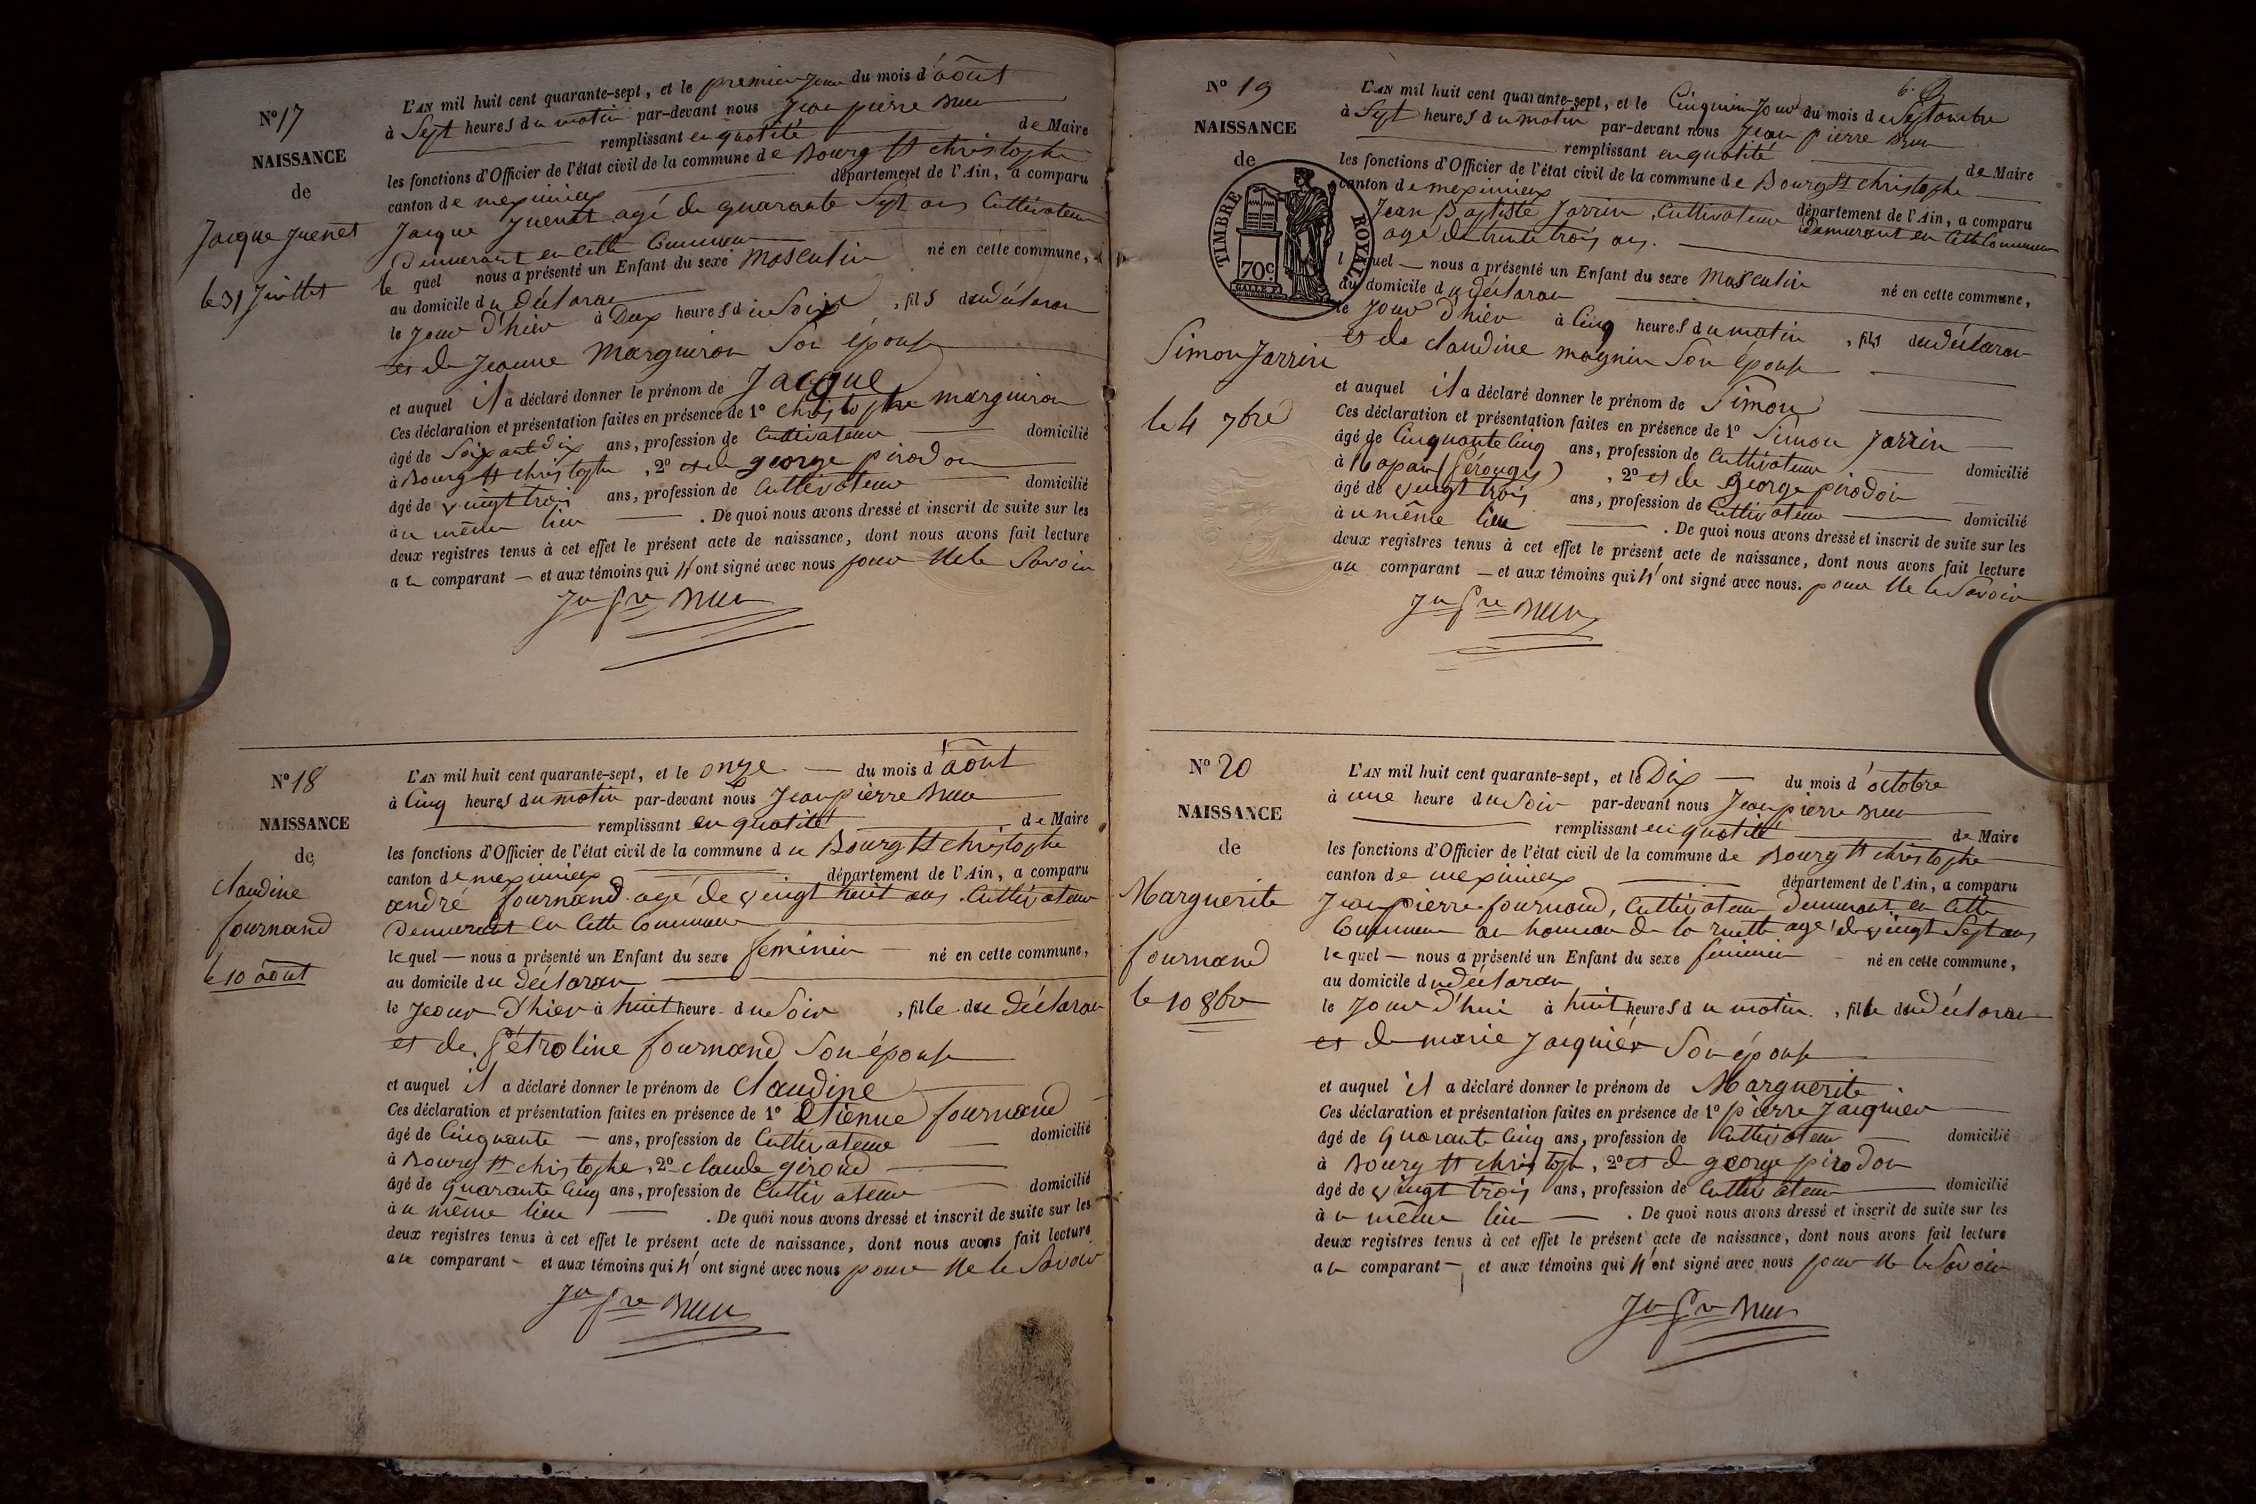 N° 17
NAISSANCE
de
Jacque Juenet
le 31 Juillet
L'AN mil huit cent quarante-sept, et le premier Jour du mois d'août
à Sept heures du matin par-devant nous Jean pierre Brun
remplissant en quatité de Maire
les fonctions d'Officier de l'état civil de la commune de Bourg St christophe
canton de meximieux département de l'Ain, a comparu
Jacque Juenet agé de quarante Sept ans Cultivateur
Demeurant en cette Commune
le quel nous a présenté un Enfant du sexe Masculin né en cette commune,
au domicile du déclaran
le Jour d'hier à Dix heures du Soir, fils du déclaran
et de Jeanne Marguiron Son épouse
et auquel il a déclaré donner le prénom de Jacque
Ces déclaration et présentation faites en présence de 1° christophe marguiron
âgé de Soixant dix ans, profession de Cultivateur domicilié
à Bourg St christophe, 2° et de george pirodon
âgé de vingt trois ans, profession de Cultivateur domicilié
à u même lieu. De quoi nous avons dressé et inscrit de suite sur les
deux registres tenus à cet effet le présent acte de naissance, dont nous avons fait lecture
a u comparant — et aux témoins qui n'ont signé avec nous pour Ne le Savoir
Jn pre Brun
N° 18
NAISSANCE
de
claudine
fournand
le 10 août
L'AN mil huit cent quarante-sept, et le onze — du mois d'août
à Cinq heures du matin par-devant nous Jean pierre Brun
remplissant en quatité de Maire
les fonctions d'Officier de l'état civil de la commune de Bourg St christophe
canton de meximieux département de l'Ain, a comparu
andré fournand agé de vingt huit ans. Cultivateur
Demeurant en Cette Commune
le quel — nous a présenté un Enfant du sexe feminin né en cette commune,
au domicile du déclaran
le Jour D'hier à huit heure du Soir, fille du déclaran
et de Pétroline fournand Son épouse
et auquel il a déclaré donner le prénom de claudine
Ces déclaration et présentation faites en présence de 1° Etienne fournand
âgé de Cinquante — ans, profession de Cultivateur domicilié
à Bourg St christophe, 2° claude giroud
âgé de quarante Cinq ans, profession de Cultivateur domicilié
à u même lieu. De quoi nous avons dressé et inscrit de suite sur les
deux registres tenus à cet effet le présent acte de naissance, dont nous avons fait lecture
a u comparant — et aux témoins qui n'ont signé avec nous pour Ne le Savoir
Jn pre Brun
N° 19
NAISSANCE
de
TIMBRE ROYAL
70 c.
Simon Jarrin
le 4 7bre
L'AN mil huit cent quarante-sept, et le Cinquiem Jour du mois de Septembre
à Sept heures du matin par-devant nous Jean pierre Brun
remplissant en quatité de Maire
les fonctions d'Officier de l'état civil de la commune de Bourg St christophe
canton de meximieux département de l'Ain, a comparu
Jean Baptiste Jarrin, Cultivateur Demeurant en Cette Commune
agé de trente trois ans.
l quel — nous a présenté un Enfant du sexe Masculin né en cette commune,
au domicile du déclaran
le Jour d'hier à Cinq heures du matin, fils du déclaran
et de claudine magnin Son épouse
et auquel il a déclaré donner le prénom de Simon
Ces déclaration et présentation faites en présence de 1° Simon Jarrin
âgé de Cinquante Cinq ans, profession de Cultivateur domicilié
à (Pérouges), 2° et de george pirodon
âgé de vingt trois ans, profession de Cultivateur domicilié
à u même lieu. De quoi nous avons dressé et inscrit de suite sur les
deux registres tenus à cet effet le présent acte de naissance, dont nous avons fait lecture
au comparant — et aux témoins qui n'ont signé avec nous. pour Ne le Savoir
Jn pre Brun
N° 20
NAISSANCE
de
Marguerite
fournand
le 10 8bre
L'AN mil huit cent quarante-sept, et le Dix — du mois d'octobre
à une heure du Soir par-devant nous Jean pierre Brun
remplissant en quatité de Maire
les fonctions d'Officier de l'état civil de la commune de Bourg St christophe
canton de meximieux département de l'Ain, a comparu
Jean pierre fournand, Cultivateur Demeurant en Cette
Commune au hameau de la ruette agé de vingt Sept ans
le quel — nous a présenté un Enfant du sexe feminin né en cette commune,
au domicile du déclaran
le Jour d'hui à huit heures du matin, fille du déclaran
et de marie Jacquier Son épouse
et auquel il a déclaré donner le prénom de Marguerite
Ces déclaration et présentation faites en présence de 1° pierre Jacquier
âgé de quarante Cinq ans, profession de Cultivateur domicilié
à Bourg St christoph, 2° et de george pirodon
âgé de vingt trois ans, profession de Cultivateur domicilié
à u même lieu — . De quoi nous avons dressé et inscrit de suite sur les
deux registres tenus à cet effet le présent acte de naissance, dont nous avons fait lecture
a u comparant — et aux témoins qui n'ont signé avec nous pour Ne le Savoir
Jn pre Brun